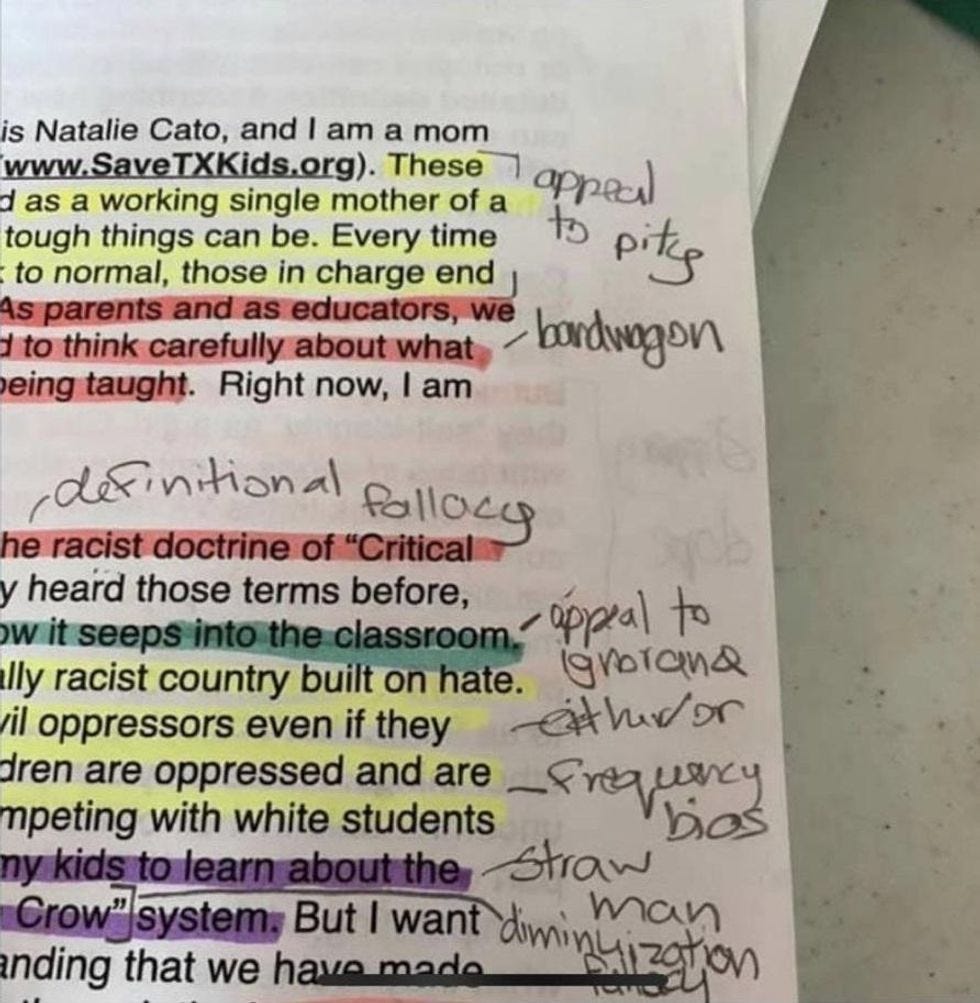 is Natalie Cato, and I am a mom
www.SaveTXKids.org). These
appeal
d as a working single mother of a
to pity
tough things can be. Every time
to normal, those in charge end
As parents and as educators, we
bandwagon
d to think carefully about what
being taught. Right now, I am
definitional fallacy
he racist doctrine of “Critical
y heard those terms before,
appeal to
ow it seeps into the classroom.
ignorance
ally racist country built on hate.
either/or
vil oppressors even if they
frequency
dren are oppressed and are
bias
mpeting with white students
straw
my kids to learn about the
man
Crow” system. But I want
anding that we have made